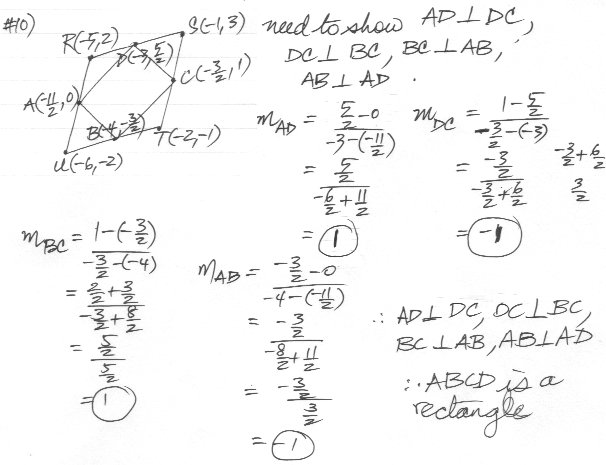 #10)
S(-1,3)
R(-5,2)
D(-3, 5/2)
C(-3/2, 1)
A(-11/2, 0)
B(-4, -3/2)
T(-2,-1)
U(-6,-2)
need to show AD⊥DC,
DC⊥BC, BC⊥AB,
AB⊥AD.
m_AD = (5/2 - 0)/(-3-(-11/2))
= (5/2)/(-6/2 + 11/2)
= 1
m_DC = (1 - 5/2)/(-3/2-(-3))
= (-3/2)/(-3/2 + 6/2)
-3/2 + 6/2
3/2
= -1
m_BC = (1-(-3/2))/(-3/2-(-4))
= (2/2 + 3/2)/(-3/2 + 8/2)
= (5/2)/(5/2)
= 1
m_AB = (-3/2 - 0)/(-4-(-11/2))
= (-3/2)/(-8/2 + 11/2)
= (-3/2)/(3/2)
= -1
∴ AD⊥DC, DC⊥BC,
BC⊥AB, AB⊥AD
∴ ABCD is a
rectangle